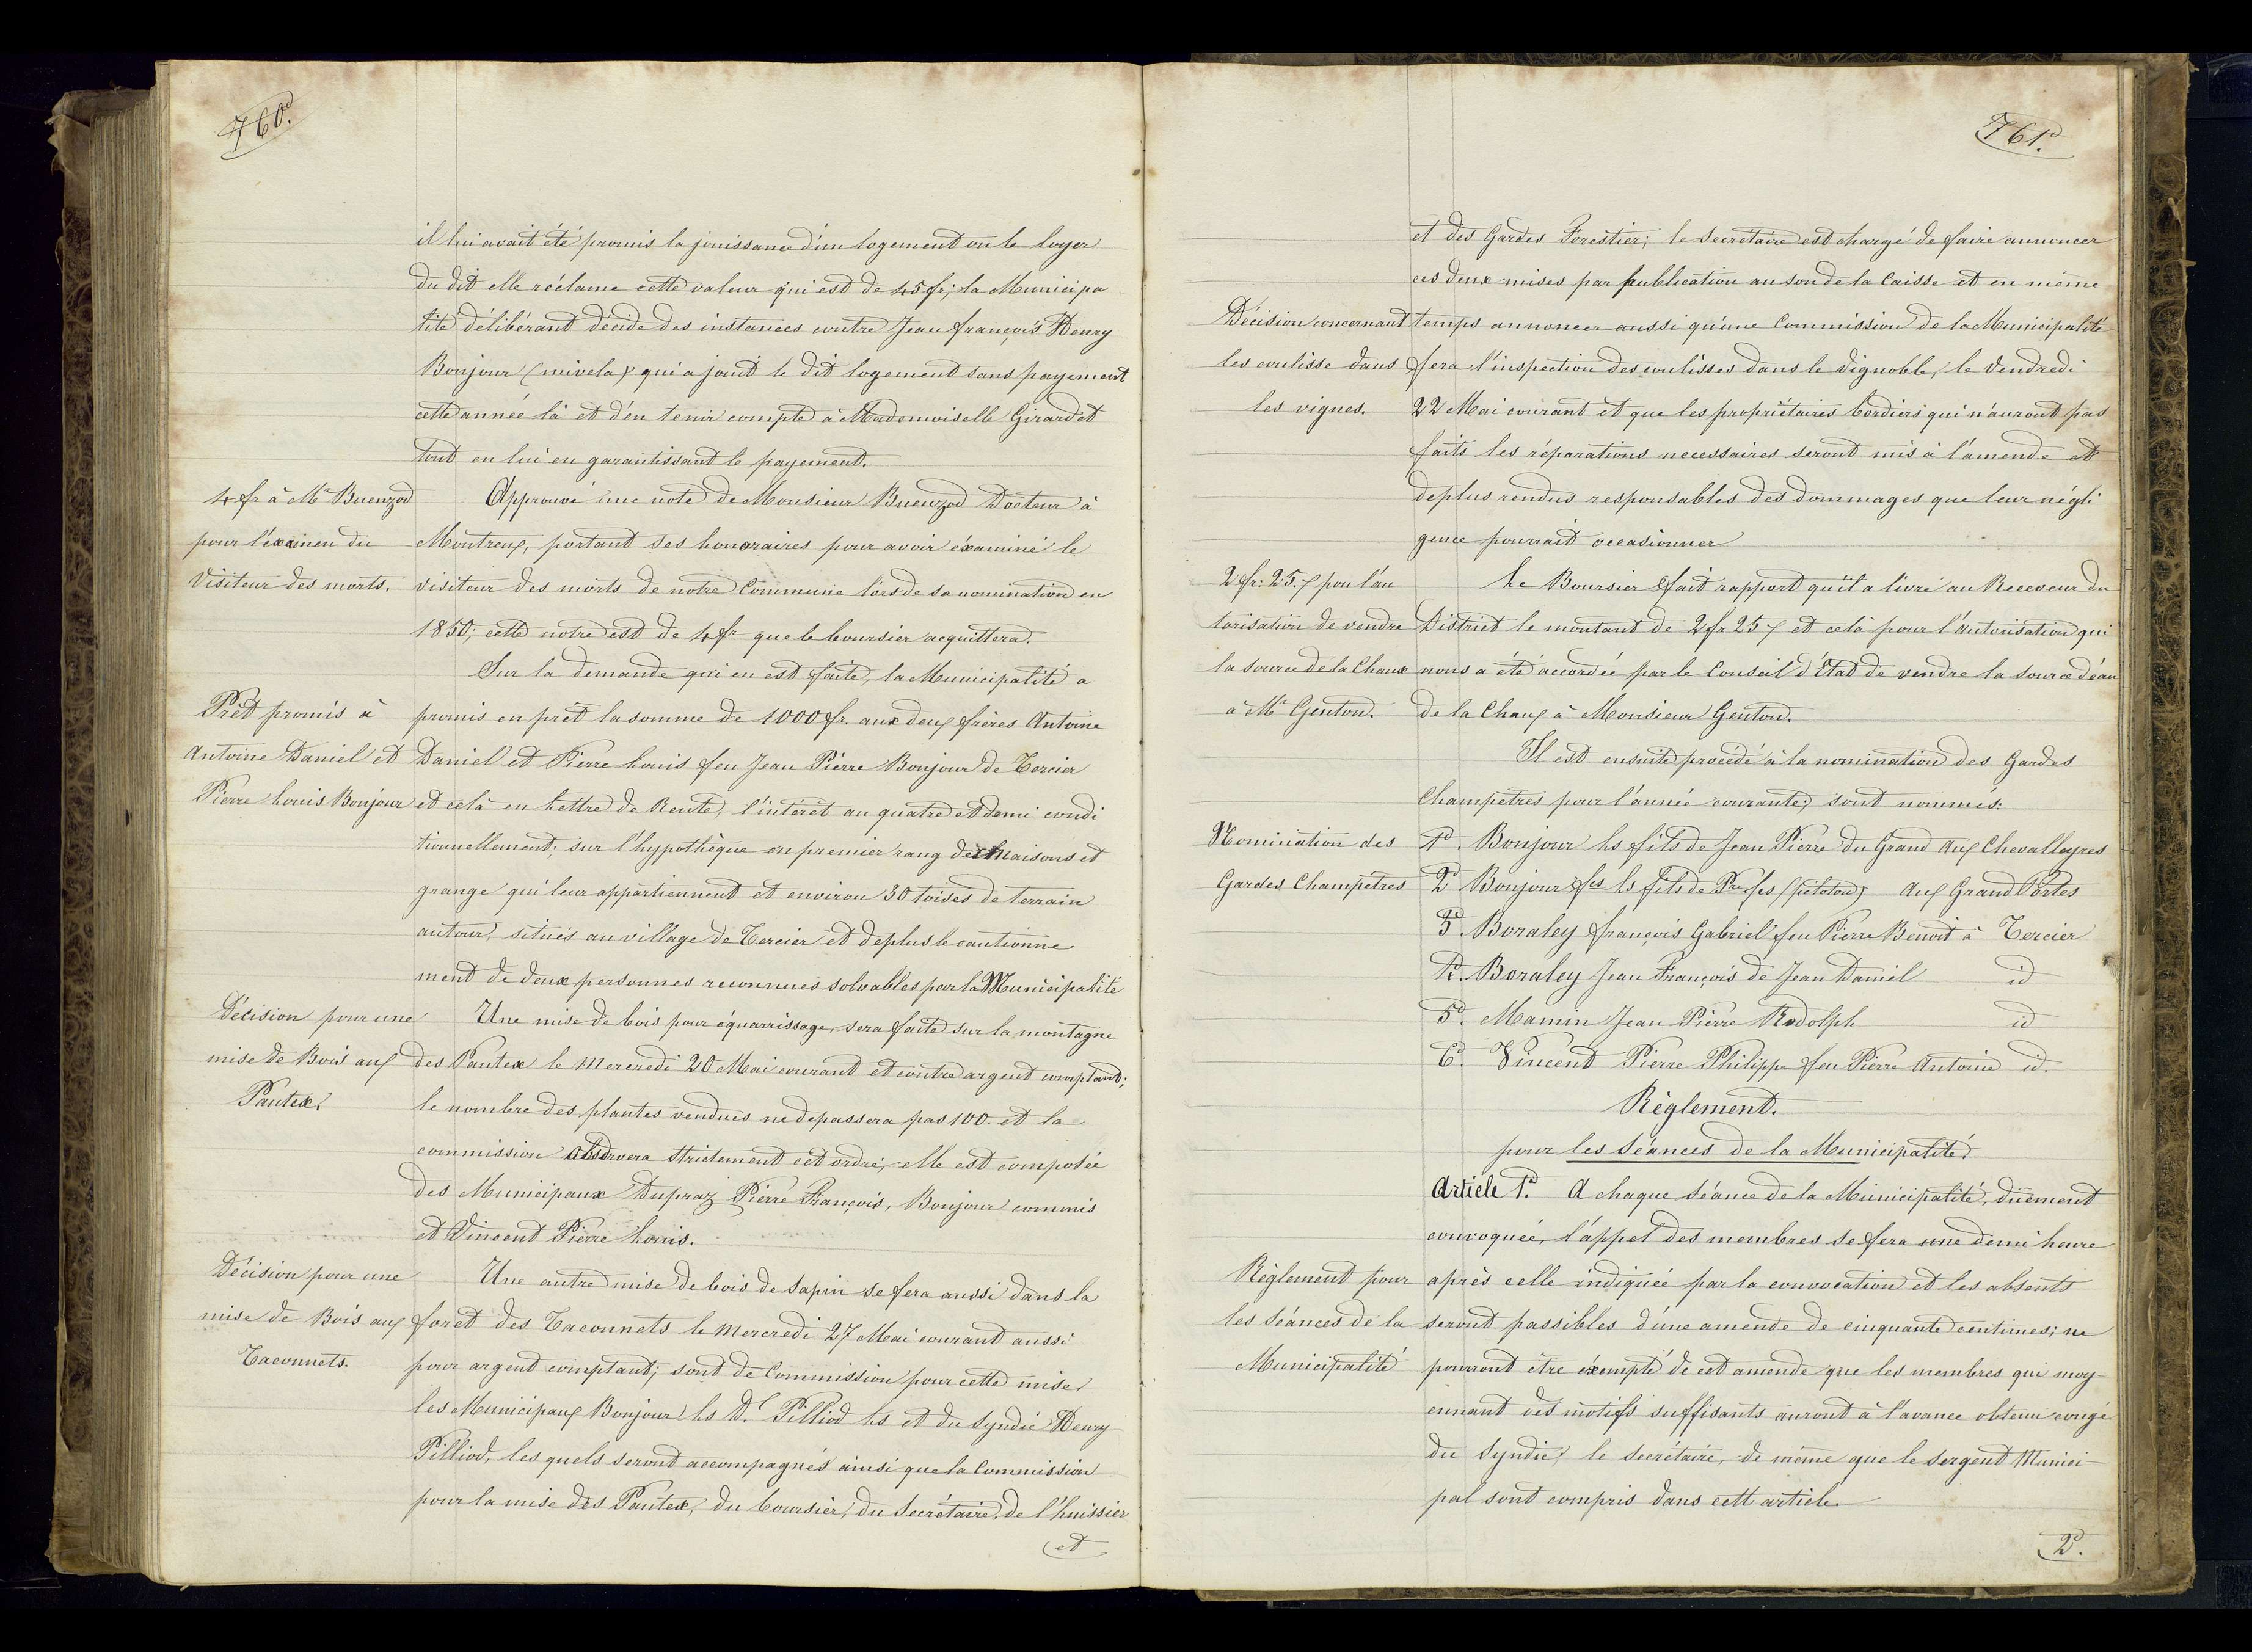 760.
il lui avait été promis la jouissance d'un logement ou le loyer
du dit elle réclame cette valeur qui est de 45 fr; la Municipa
lité délibérant décide des instances contre Jean françois Henry
Bonjour (mivela) qui a jouit le dit logement sans payement
cette année là et d'en tenir compte à Mademoiselle Girardet
tout en lui en garantissant le payement.
4 fr à Mr Buenzod
pour l'éxamen du
Visiteur des morts.
Approuvé une note de Monsieur Buenzod Docteur à
Montreux, portant ses honoraires pour avoir éxaminé le
visiteur des morts de notre Commune lors de sa nomination en
1850; cette notre est de 4 fr que le boursier acquittera.
Prêt promis à
Antoine Daniel et
Pierre Louis Bonjour
Sur la demande qui en est faite, la Municipalité a
promis en prêt la somme de 1000 fr. aux deux frères Antoine
Daniel et Pierre Louis feu Jean Pierre Bonjour de Tercier
et celà en Lettre de Rente, l'intérêt au quatre et demi condi
tionnellement; sur l'hypothèque en premier rang des Maisons et
grange qui leur appartiennent et environ 30 toises de terrain
autour, situés au village de Tercier et deplus le cautionne
ment de deux personnes reconnues solvables par la Municipalité
Décision pour une
mise de Bois aux
Pautex.
Une mise de bois pour équarrissage, sera faite sur la montagne
des Pautex le Mercredi 20 Mai courant et contre argent comptant;
le nombre des plantes vendues ne depassera pas 100 et la
commission observera strictement cet ordre; elle est composée
des Municipaux Dupraz Pierre François, Bonjour commis
et Vincent Pierre Louis.
Décision pour une
mise de Bois aux
Taconnets.
Une autre mise de bois de Sapin se fera aussi dans la
forêt des Taconnets le Mercredi 27 Mai courant aussi
pour argent comptant; sont de Commission pour cette mise
les Municipaux Bonjour Ls D.l Pilliod Ls et du Syndic Henry
Pilliod, les quels seront accompagnés ainsi que la Commission
pour la mise des Pautex, du boursier, du Secrétaire, de l'huissier
et
761.
et des Gardes Forestier; le Secrétaire est chargé de faire annoncer
ces deux mises par publication au son de la Caisse et en même
Décision concernant
les coulisse dans
les vignes.
temps annoncer aussi qu'une Commission de la Municipalité
fera l'inspection des coulisses dans le Vignoble, le Vendredi
22 Mai courant et que les propriétaires bordiers qui n'auront pas
faits les réparations necessaires seront mis à l'amende et
deplus rendus responsables des dommages que leur négli
gence pourrait occasionner
2 fr: 25. pou l'au
torisation de vendre
la source de la Chaux
à Mr Genton.
Le Boursier fait rapport qu'il a livré au Receveur du
District le montant de 2 fr 25 et celà pour l'autorisation qui
nous a été accordée par le Conseil d'État de vendre la source d'eau
de la Chaux à Monsieur Genton.
Il est ensuite procédé à la nomination des Gardes
Champetres pour l'année courante; sont nommés:
Nomination des
Gardes Champetres
1o. Bonjour Ls fils de Jean Pierre du Grand aux Chevalleyres
2o Bonjour fcs Ls fils de Pre fcs (pitotou) aux Grand Portes
3o. Boraley françois Gabriel feu Pierre Benoit à Tercier
4o. Boraley Jean François de Jean Daniel id
5o. Mamin Jean Pierre Rodolph id
6o. Vincent Pierre Philippe feu Pierre Antoine id.
Règlement.
pour les Séances de la Municipalité
Règlement pour
les Séances de la
Municipalité
Article 1o. A chaque Séance de la Municipalité, dûement
convoquée, l'appel des membres se fera une demi heure
après celle indiquée par la convocation et les absents
seront passibles d'une amende de cinquante centimes; ne
pourront être éxempté de cet amende que les membres qui moy-
ennant des motifs suffisants auront à l'avance obtenu congé
du Syndic; le secrétaire, de même que le Sergent Munici-
pal sont compris dans cett article.
2o.